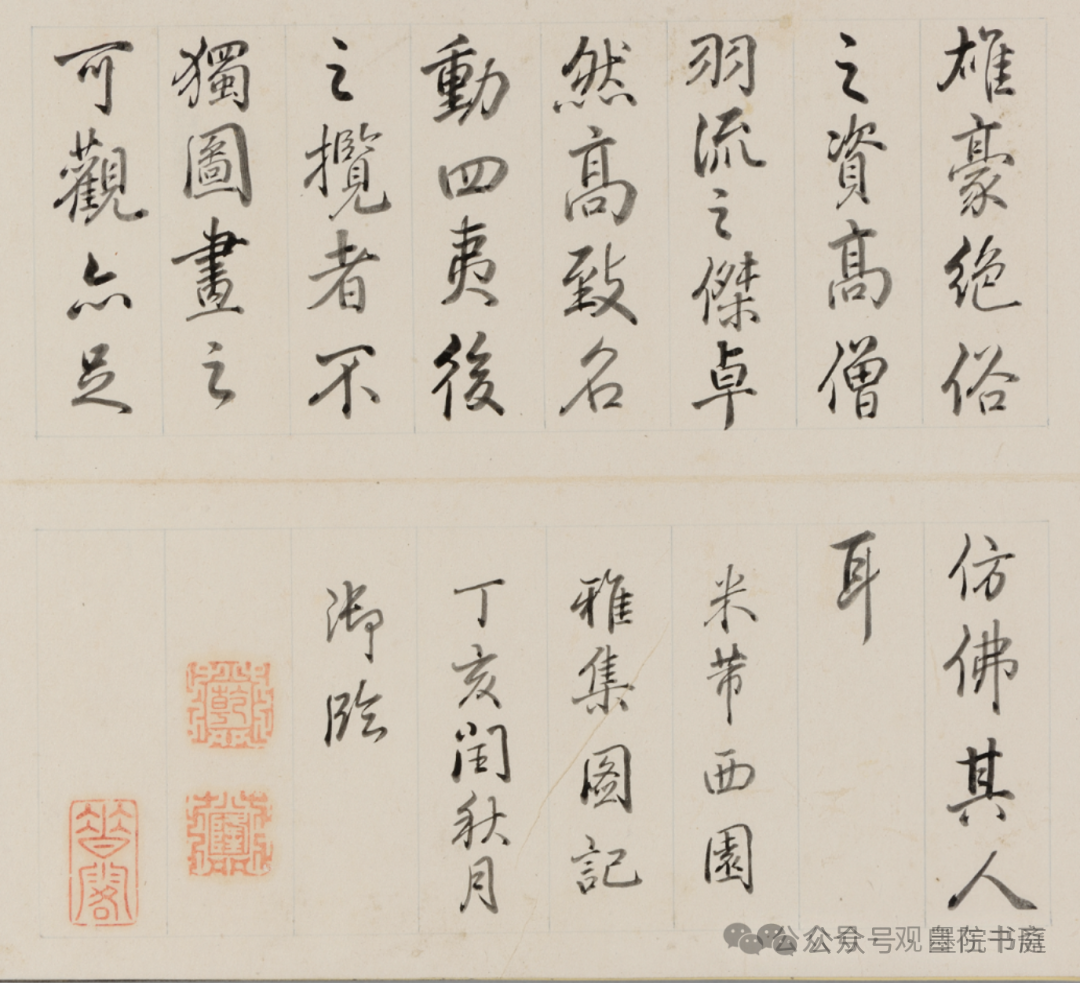 雄豪絶俗
之資高僧
羽流之傑卓
然高致名
動四夷後
之攬者不
獨圖畫之
可觀亦足
仿佛其人
耳
米芾西園
雅集圖記
丁亥閏秋月
御臨
晉閣
公众号·观墨院书庭